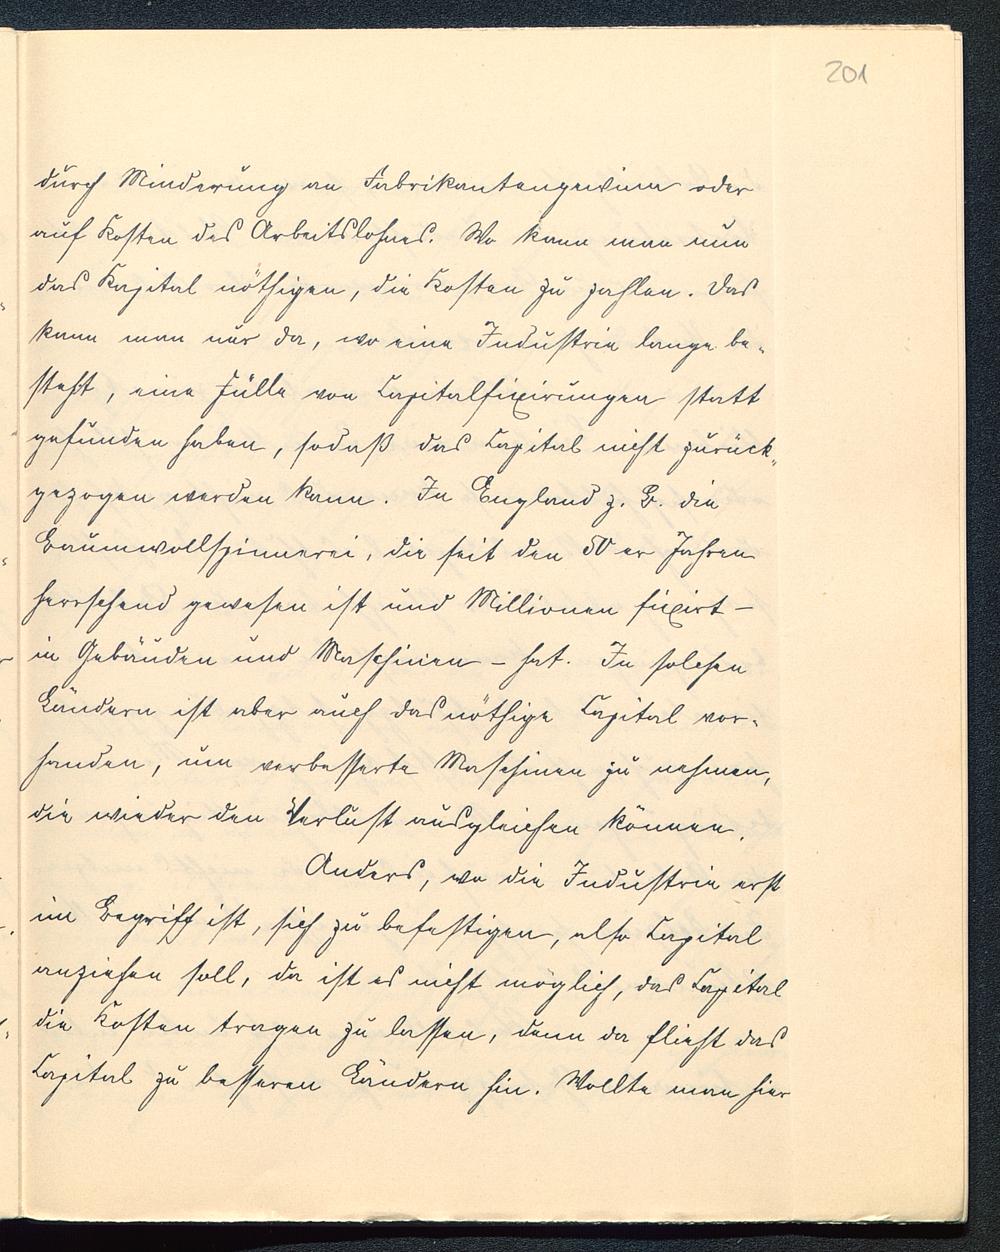 201
durch Minderung an Fabrikantengewinn oder
auf Kosten des Arbeitslohnes. Wo kann man nun
das Kapital nöthigen, die Kosten zu zahlen. Das
kann man nur da, wo eine Industrie lange be-
steht, eine Fülle von Capitalfixirungen statt
gefunden haben, sodaß das Capital nicht zurück-
gezogen werden kann. In England z. B. die
Baumwollspinnerei, die seit den 50er Jahren
herrschend gewesen ist und Millionen fixirt –
in Gebäuden und Maschinen – hat. In solchen
Ländern ist aber auch das nöthige Capital vor-
handen, um verbesserte Maschinen zu nehmen,
die wieder den Verlust ausgleichen können.
Anders, wo die Industrie erst
im Begriff ist, sich zu befestigen, also Capital
anziehen soll, da ist es nicht möglich, das Capital
die Kosten tragen zu lassen, denn da flieht das
Capital zu besseren Ländern hin. Wollte man hier